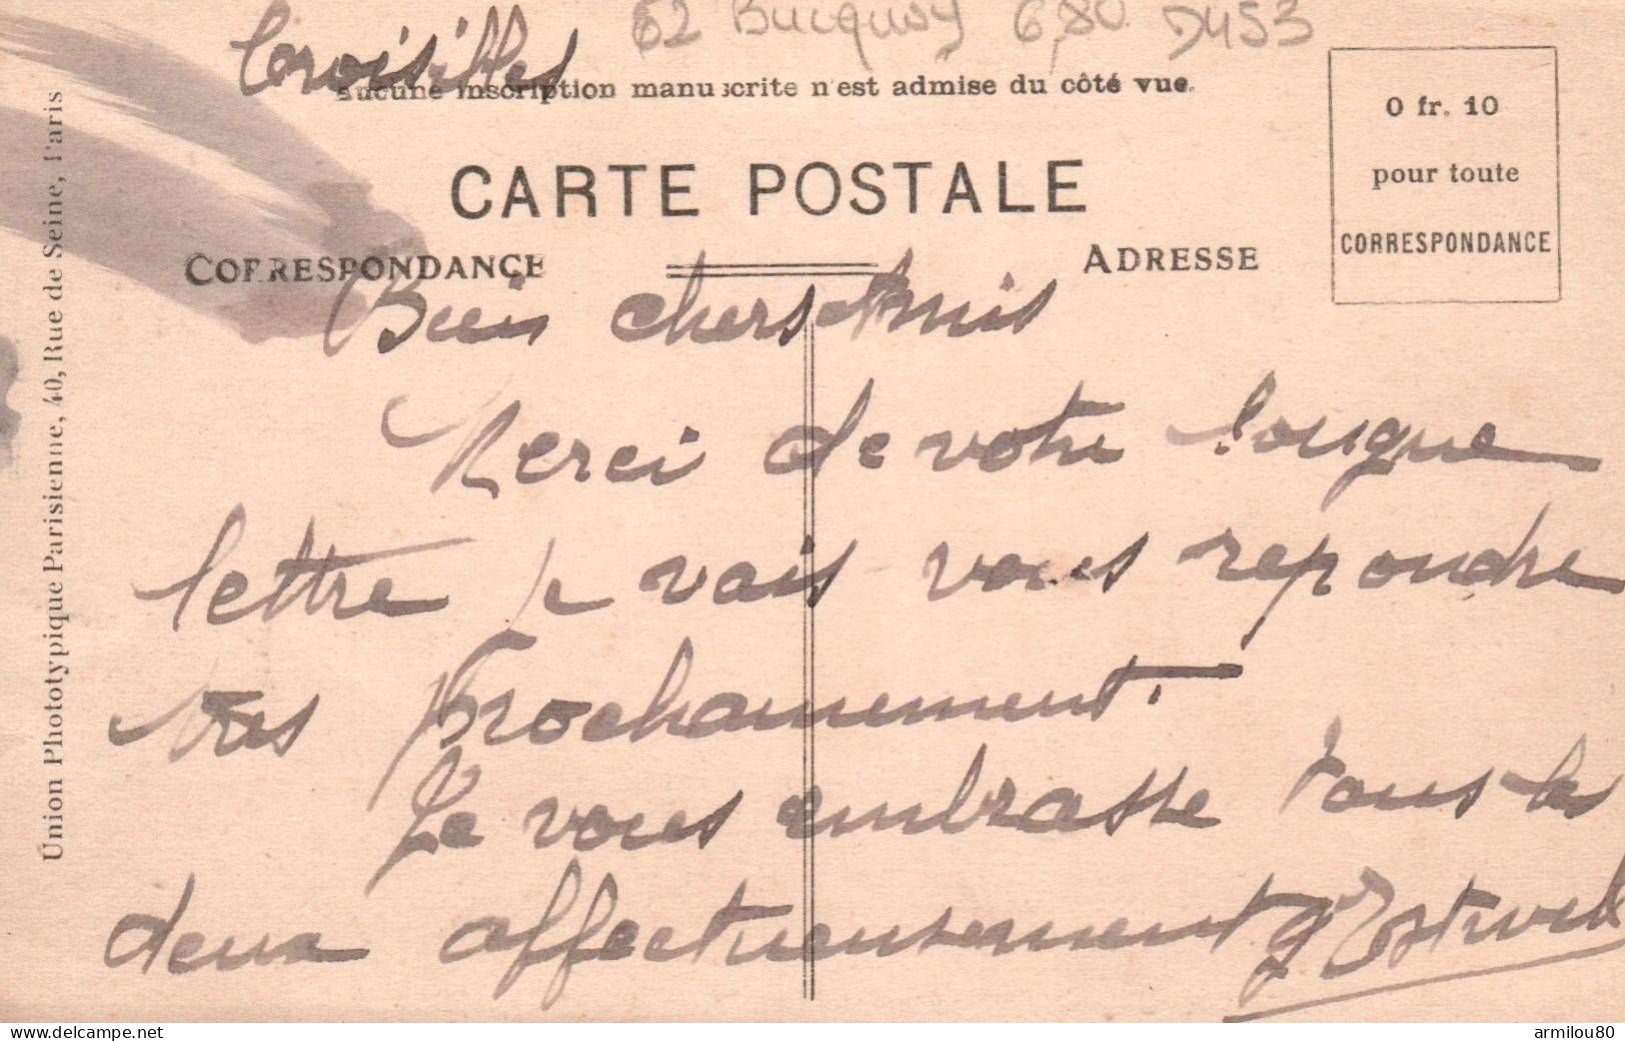 Croisilles 62 Bucquoy 6,80 D453
aucune inscription manuscrite n'est admise du côté vue.
CARTE POSTALE
CORRESPONDANCE ADRESSE
0 fr. 10
pour toute
CORRESPONDANCE
Union Phototypique Parisienne, 40, Rue de Seine, Paris
Bien chers Amis
Merci de votre longue
lettre je vais vous repondre
très prochainement.
Je vous embrasse tous les
deux affectueusement
armilou80